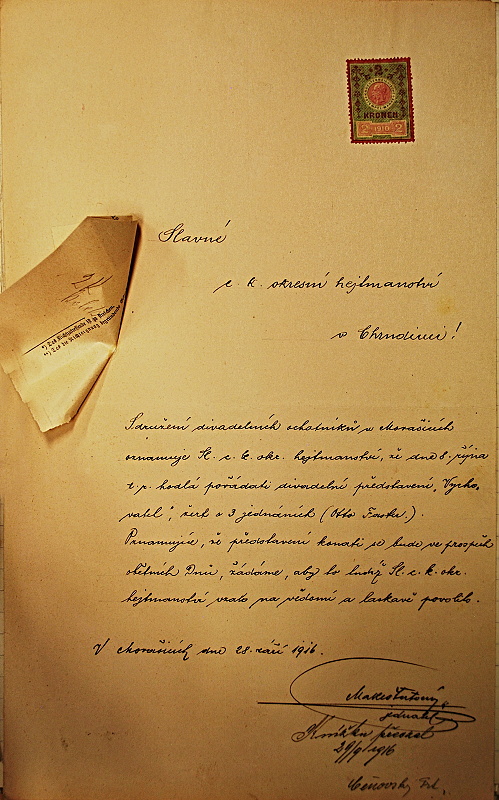 2
KRONEN
2 1910 2
Slavné
c. k. okresní hejtmanství
v Chrudimi!
Sdružení divadelních ochotníků v Morašicích
oznamuje Sl. c. k. okr. hejtmanství, že dne 8. října
t. r. hodlá pořádati divadelní představení „Vycho-
vatel“, žert o 3 jednáních (Otto Faster.)
Poznamenajíc, že představení konati se bude ve prospěch
obětních Dnů, žádáme, aby to ludíž Sl. c. k. okr.
hejtmanství vzalo na vědomí a laskavě povolilo.
V Morašicích dne 28. září 1916.
jednatel
29/9 1916